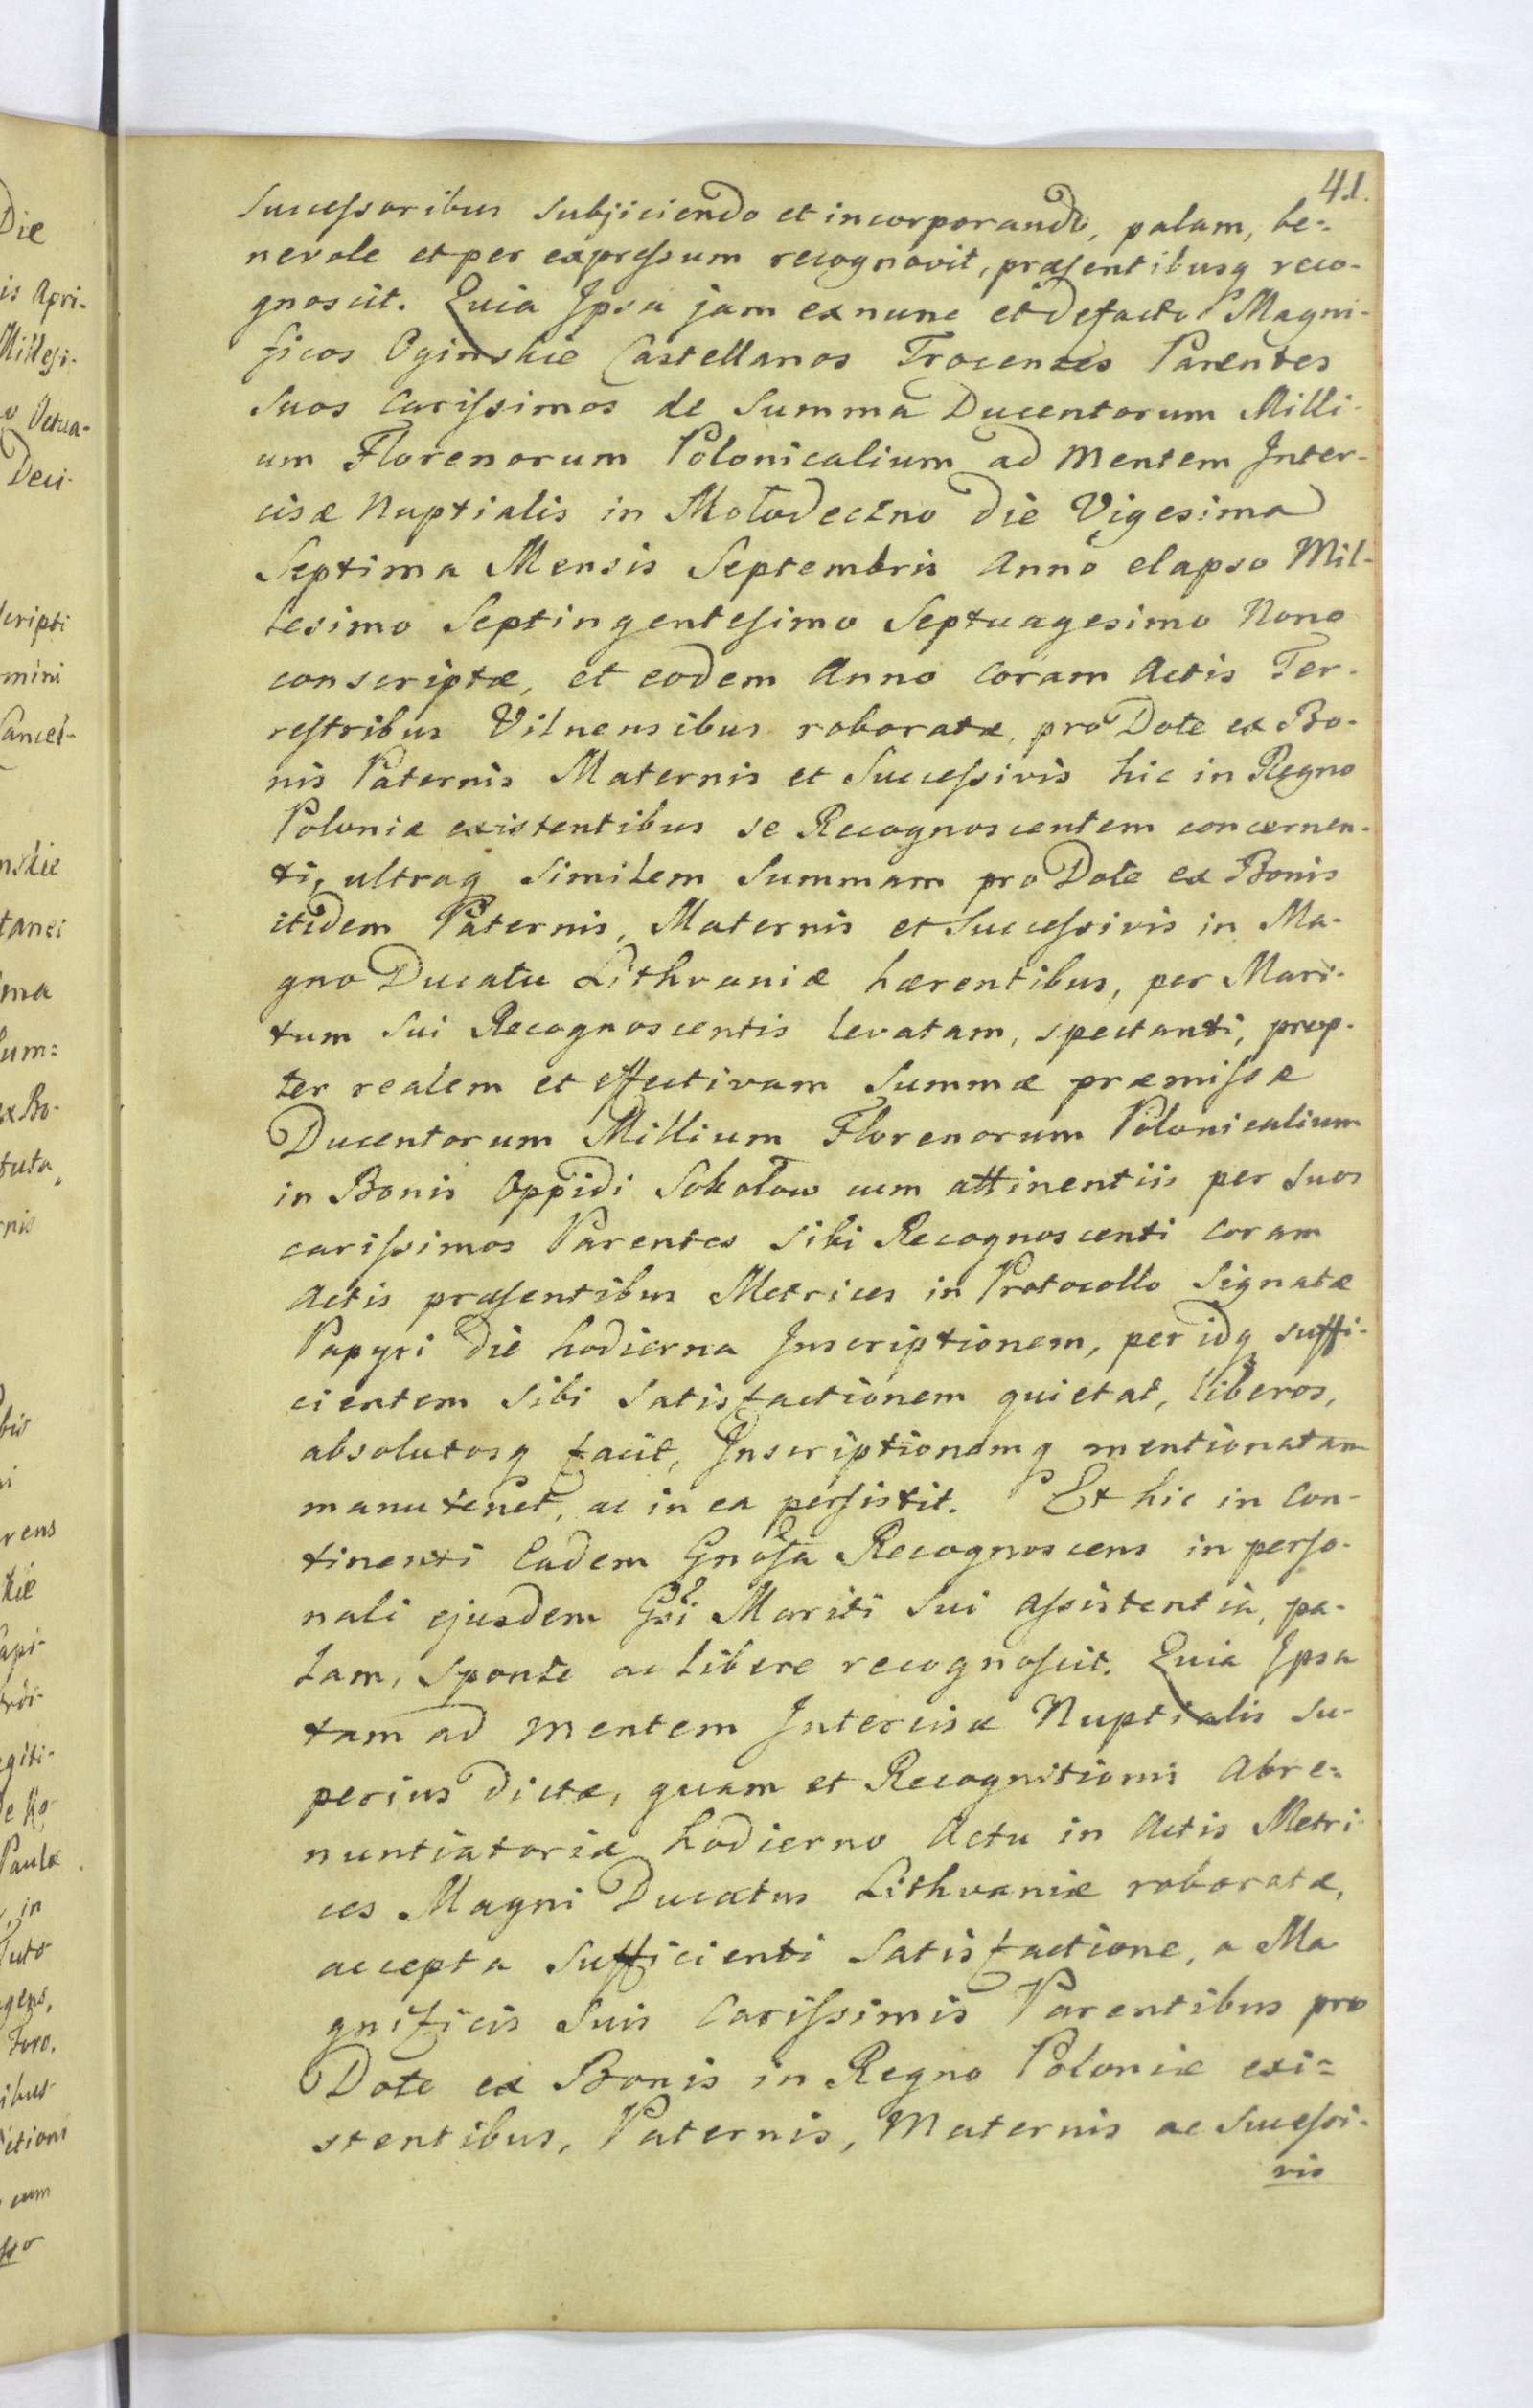 41.
Successoribus subjiciendo et incorporando, palam, be=
nevole et per expressum recognovit, præsentibusq reco-
gnoscit. Quia Ipsa jam exnunc et defacto Magni-
ficos Oginskie Castellanos Trocenses Parentes
Suos Carissimos de Summa Ducentorum Milli-
um Florenorum Polonicalium ad mentem Inter-
cisæ Nuptialis in Mołodeczno die Vigesima
Septima Mensis Septembris Anno elapso Mil-
lesimo Septingentesimo Septuagesimo Nono
conscriptæ, et eodem Anno Coram Actis Ter-
restribus Vilnensibus roboratæ, pro Dote ex Bo-
nis Paternis Maternis et Successivis hic in Regno
Poloniæ existentibus se Recognoscentem concernen-
ti, ultraq similem Summam pro Dote ex Bonis
itidem Paternis, Maternis et Successivis in Ma-
gno Ducatu Lithvaniæ hærentibus, per Mari-
tum sui Recognoscentis levatam, spectanti, prop-
ter realem et effectivam Summæ præmissæ
Ducentorum Millium Florenorum Polonicalium
in Bonis Oppidi Sokołow cum attinentiis per suos
carissimos Parentes sibi Recognoscenti coram
Actis præsentibus Metrices in Protocollo Signatæ
Papyri die hodierna Inscriptionem, per idq suffi-
cientem sibi satisfactionem quietat, liberos,
absolutosq facit, Inscriptionemq mentionatam
manutenet, ac in ea persistit. Et hic in Con-
tinenti Eadem Gnosa Recognoscens in perso-
nali ejusdem Gsi Mariti sui assistentia, pa-
lam, sponte ac libere recognoscit. Quia Ipsa
tam ad mentem Intercisæ Nuptialis su-
perius dictæ, quam et Recognitionis Abre=
nuntiatoriæ hodierno Actu in Actis Metri-
ces Magni Ducatus Lithvaniæ roboratæ,
accepta sufficienti Satisfactione, a Ma
gnificis Suis Carissimis Parentibus pro
Dote ex Bonis in Regno Poloniæ exi=
stentibus, Paternis, Maternis ac Successi-
vis